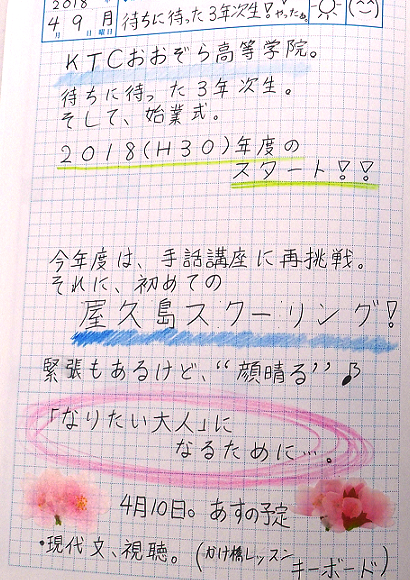 2018
4月9日月曜日 待ちに待った3年次生!やったぁ
KTCおおぞら高等学院。
待ちに待った3年次生。
そして、始業式。
2018(H30)年度の
スタート!!
今年度は、手話講座に再挑戦。
それに、初めての
屋久島スクーリング!
緊張もあるけど、“顔晴る”♪
「なりたい大人」に
なるために…。
4月10日。あすの予定
・現代文、視聴。(かけ橋レッスン
キーボード)